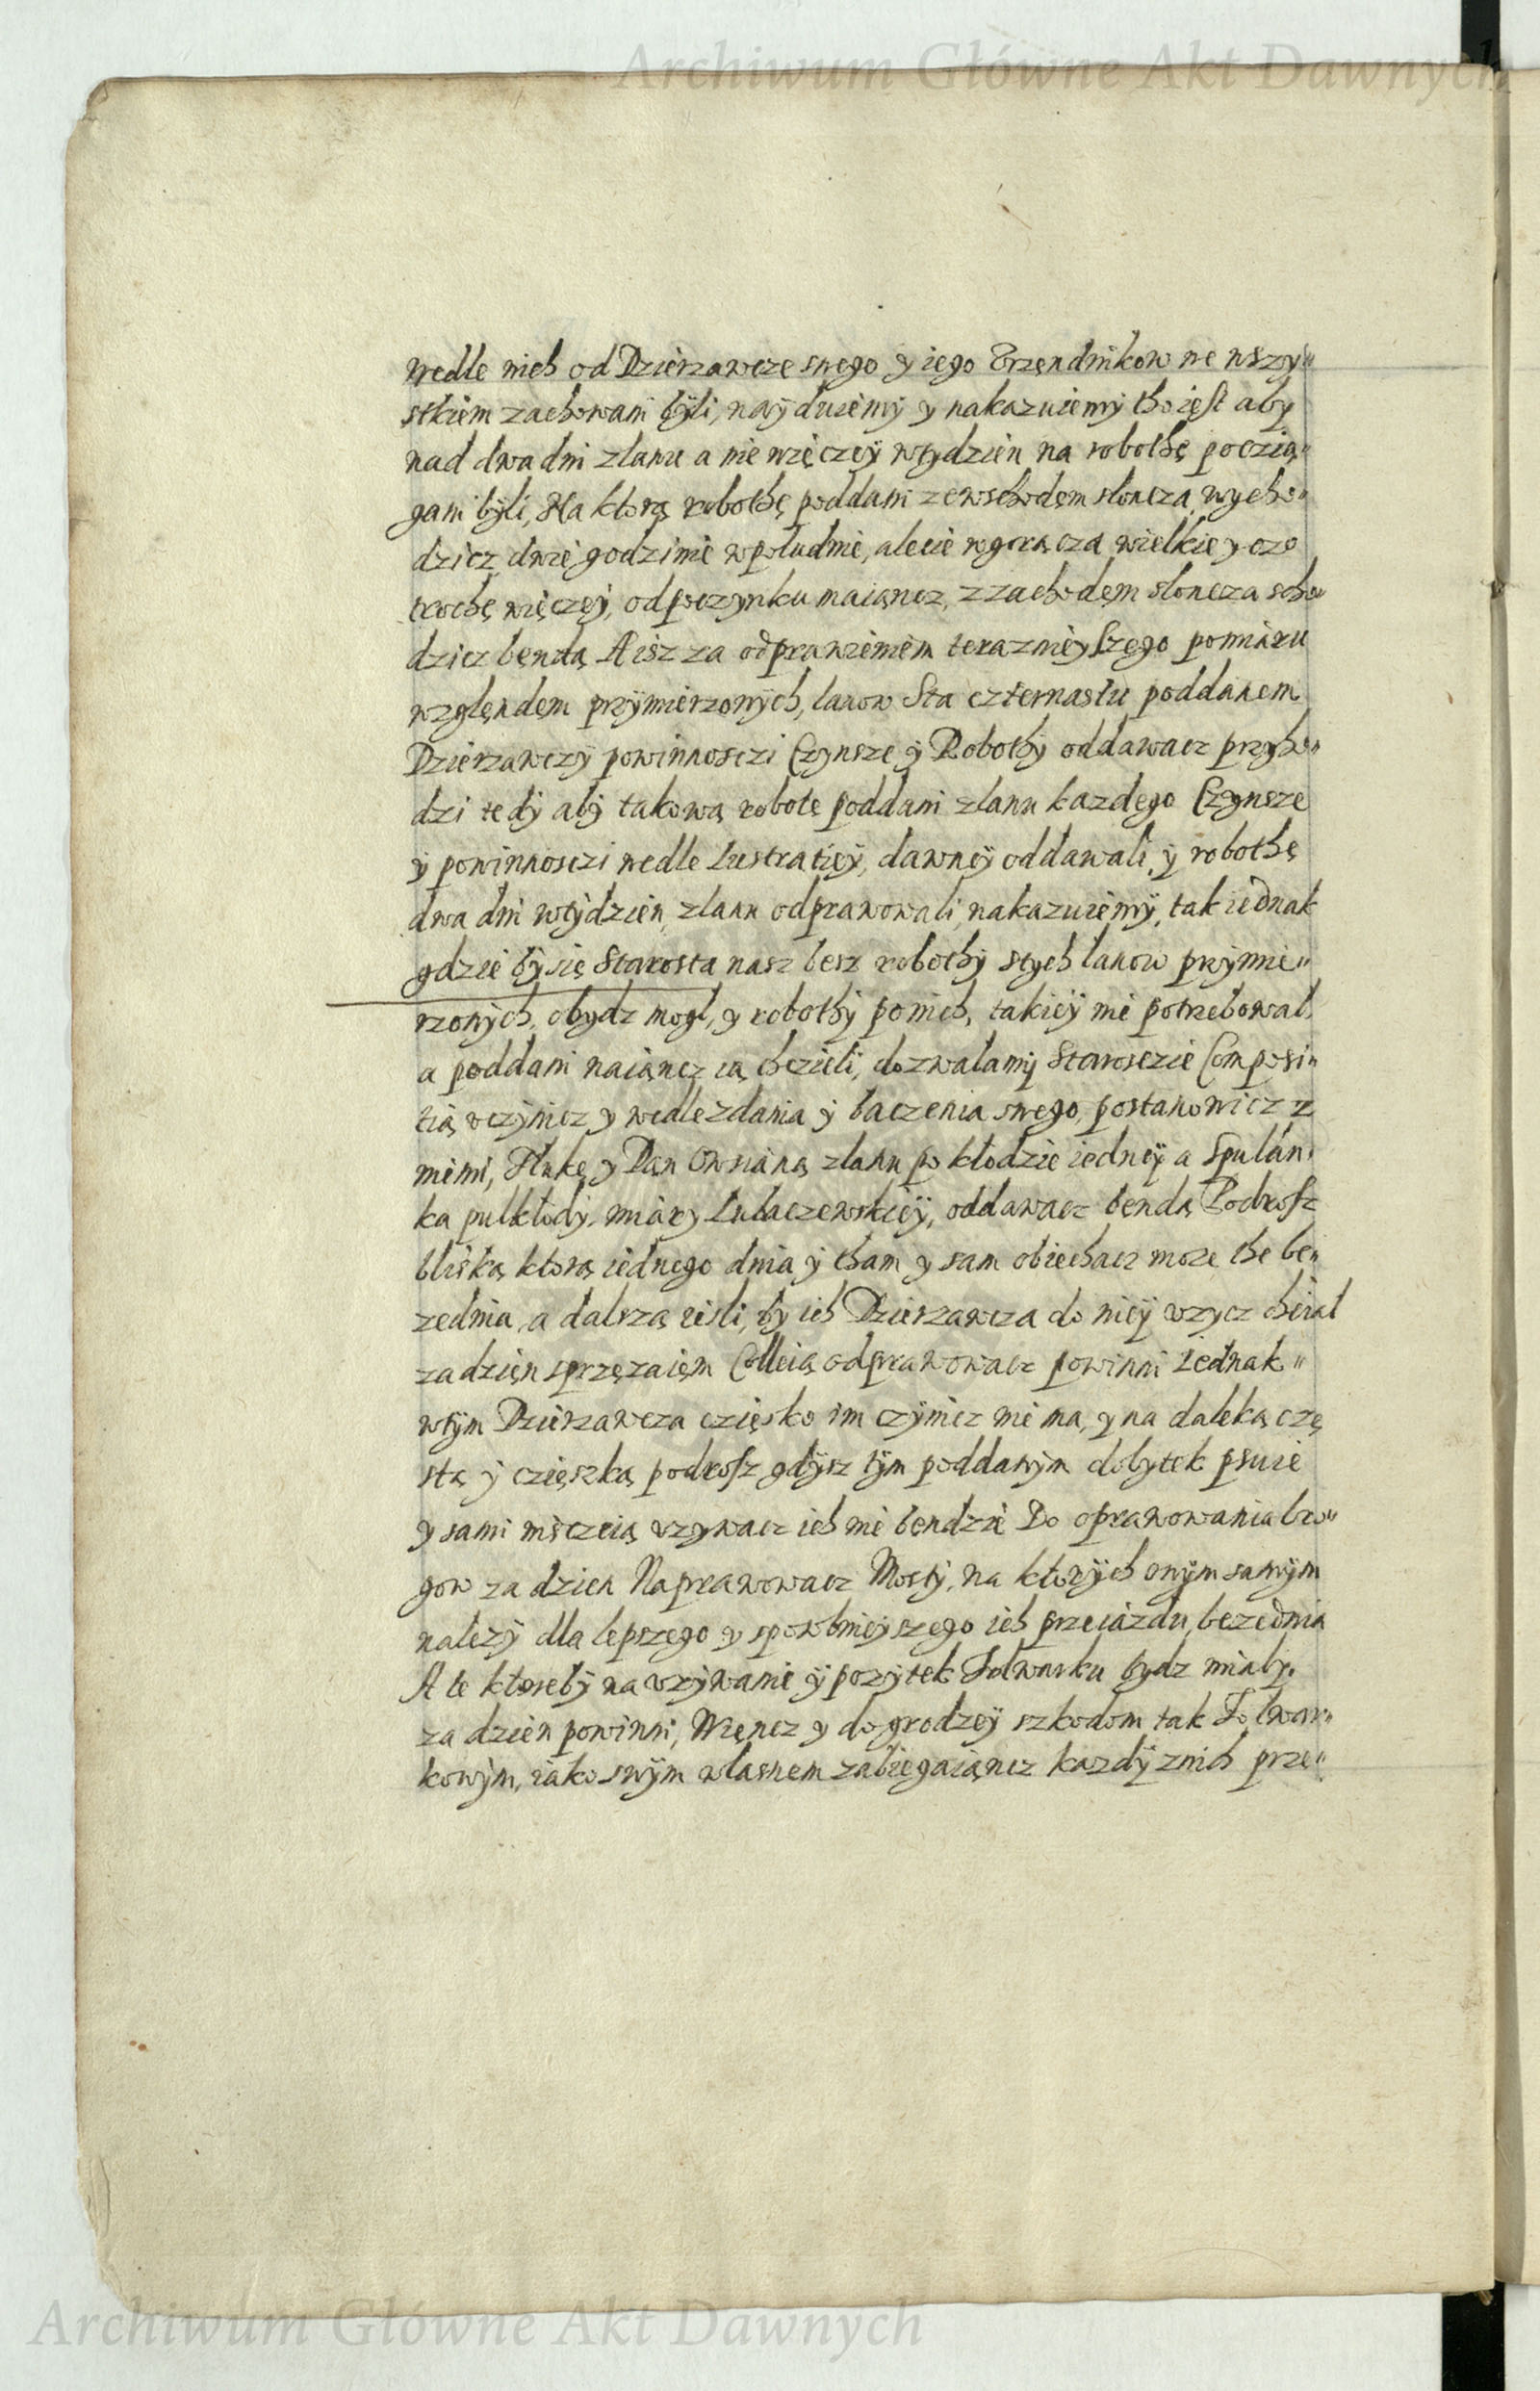 Archiwum Główne Akt Dawnych
wedle nich od Dzierzawcze swego y iego Vrzendnikow we wszy„
stkiem zachowani byli, nayduiemy y nakazuiemy tho iest aby
nad dwa dni zlanu a nie więczey wtydzien na robothę poczią„
gani byli, Na ktorą robothę poddani zewschodem sloncza wycho„
dzicz dwie godzinie wpoludnie, alecie wgorącza wielkie y czo
trochę więczey, odpoczynku maiąncz, zzachodem sloncza scho„
dzicz bendą A isz za odprawieniem teraznieyszego pomiaru
względem przymierzonych, lanow Sta czternastu poddanem
Dzierzawczy powinnosczi Czynsze y Robothy oddawacz przycho„
dzi tedy aby takową robotę poddani zlanu kazdego Czynsze
y powinnosczi wedle Lustratiey, dawney oddawali, y robothę
dwa dni wtydzien, zlanu odprawowali, nakazuiemy, tak iednak
gdzie by się Starosta nasz besz robothy stych lanow przymie„
rzonych, obydz mogl, y robothy ponich, takiey nie potrzebowal,
a poddani naiąncz ią chczieli, dozwalamy Starosczie Composi„
tią vczynicz y wedle zdania y baczenia swego, postanowicz z
niemi, y Dan Owsianą zlanu po klodzie iedney a Spulan„
ka pulklody, miary Lubaczewskiey, oddawacz bendą Podrosz
bliską ktorą iednego dnia y tham y sam obiechacz moze the be„
zednia, a dalszą iesli, by ich Dzierzawcza do niey vzycz chcial
zadzien sprzęzaiem Colleią odprawowacz powinni Iednak„
wtym Dzierzawcza cziesko im czynicz nie ma, y na daleką czę
stą y czięszką podrosz gdysz tym poddanym dobytek psuie
y sami nisczeią vzywacz ich nie bendzie Do oprawowania bro„
gow za dzien Naprawowacz Mosty, na ktorych onym samym
nalezy dla lepszego y sposobnieyszego ich przeiazdu, bezednia
A te ktoreby na vzywanie y pozytek Folwarku bydz mialy,
za dzien powinni, Więncz y dogrodzey szkodom tak Folwar„
kowym, iako swym wlasnem zabiegaiąncz kazdy znich prze„
Archiwum Główne Akt Dawnych